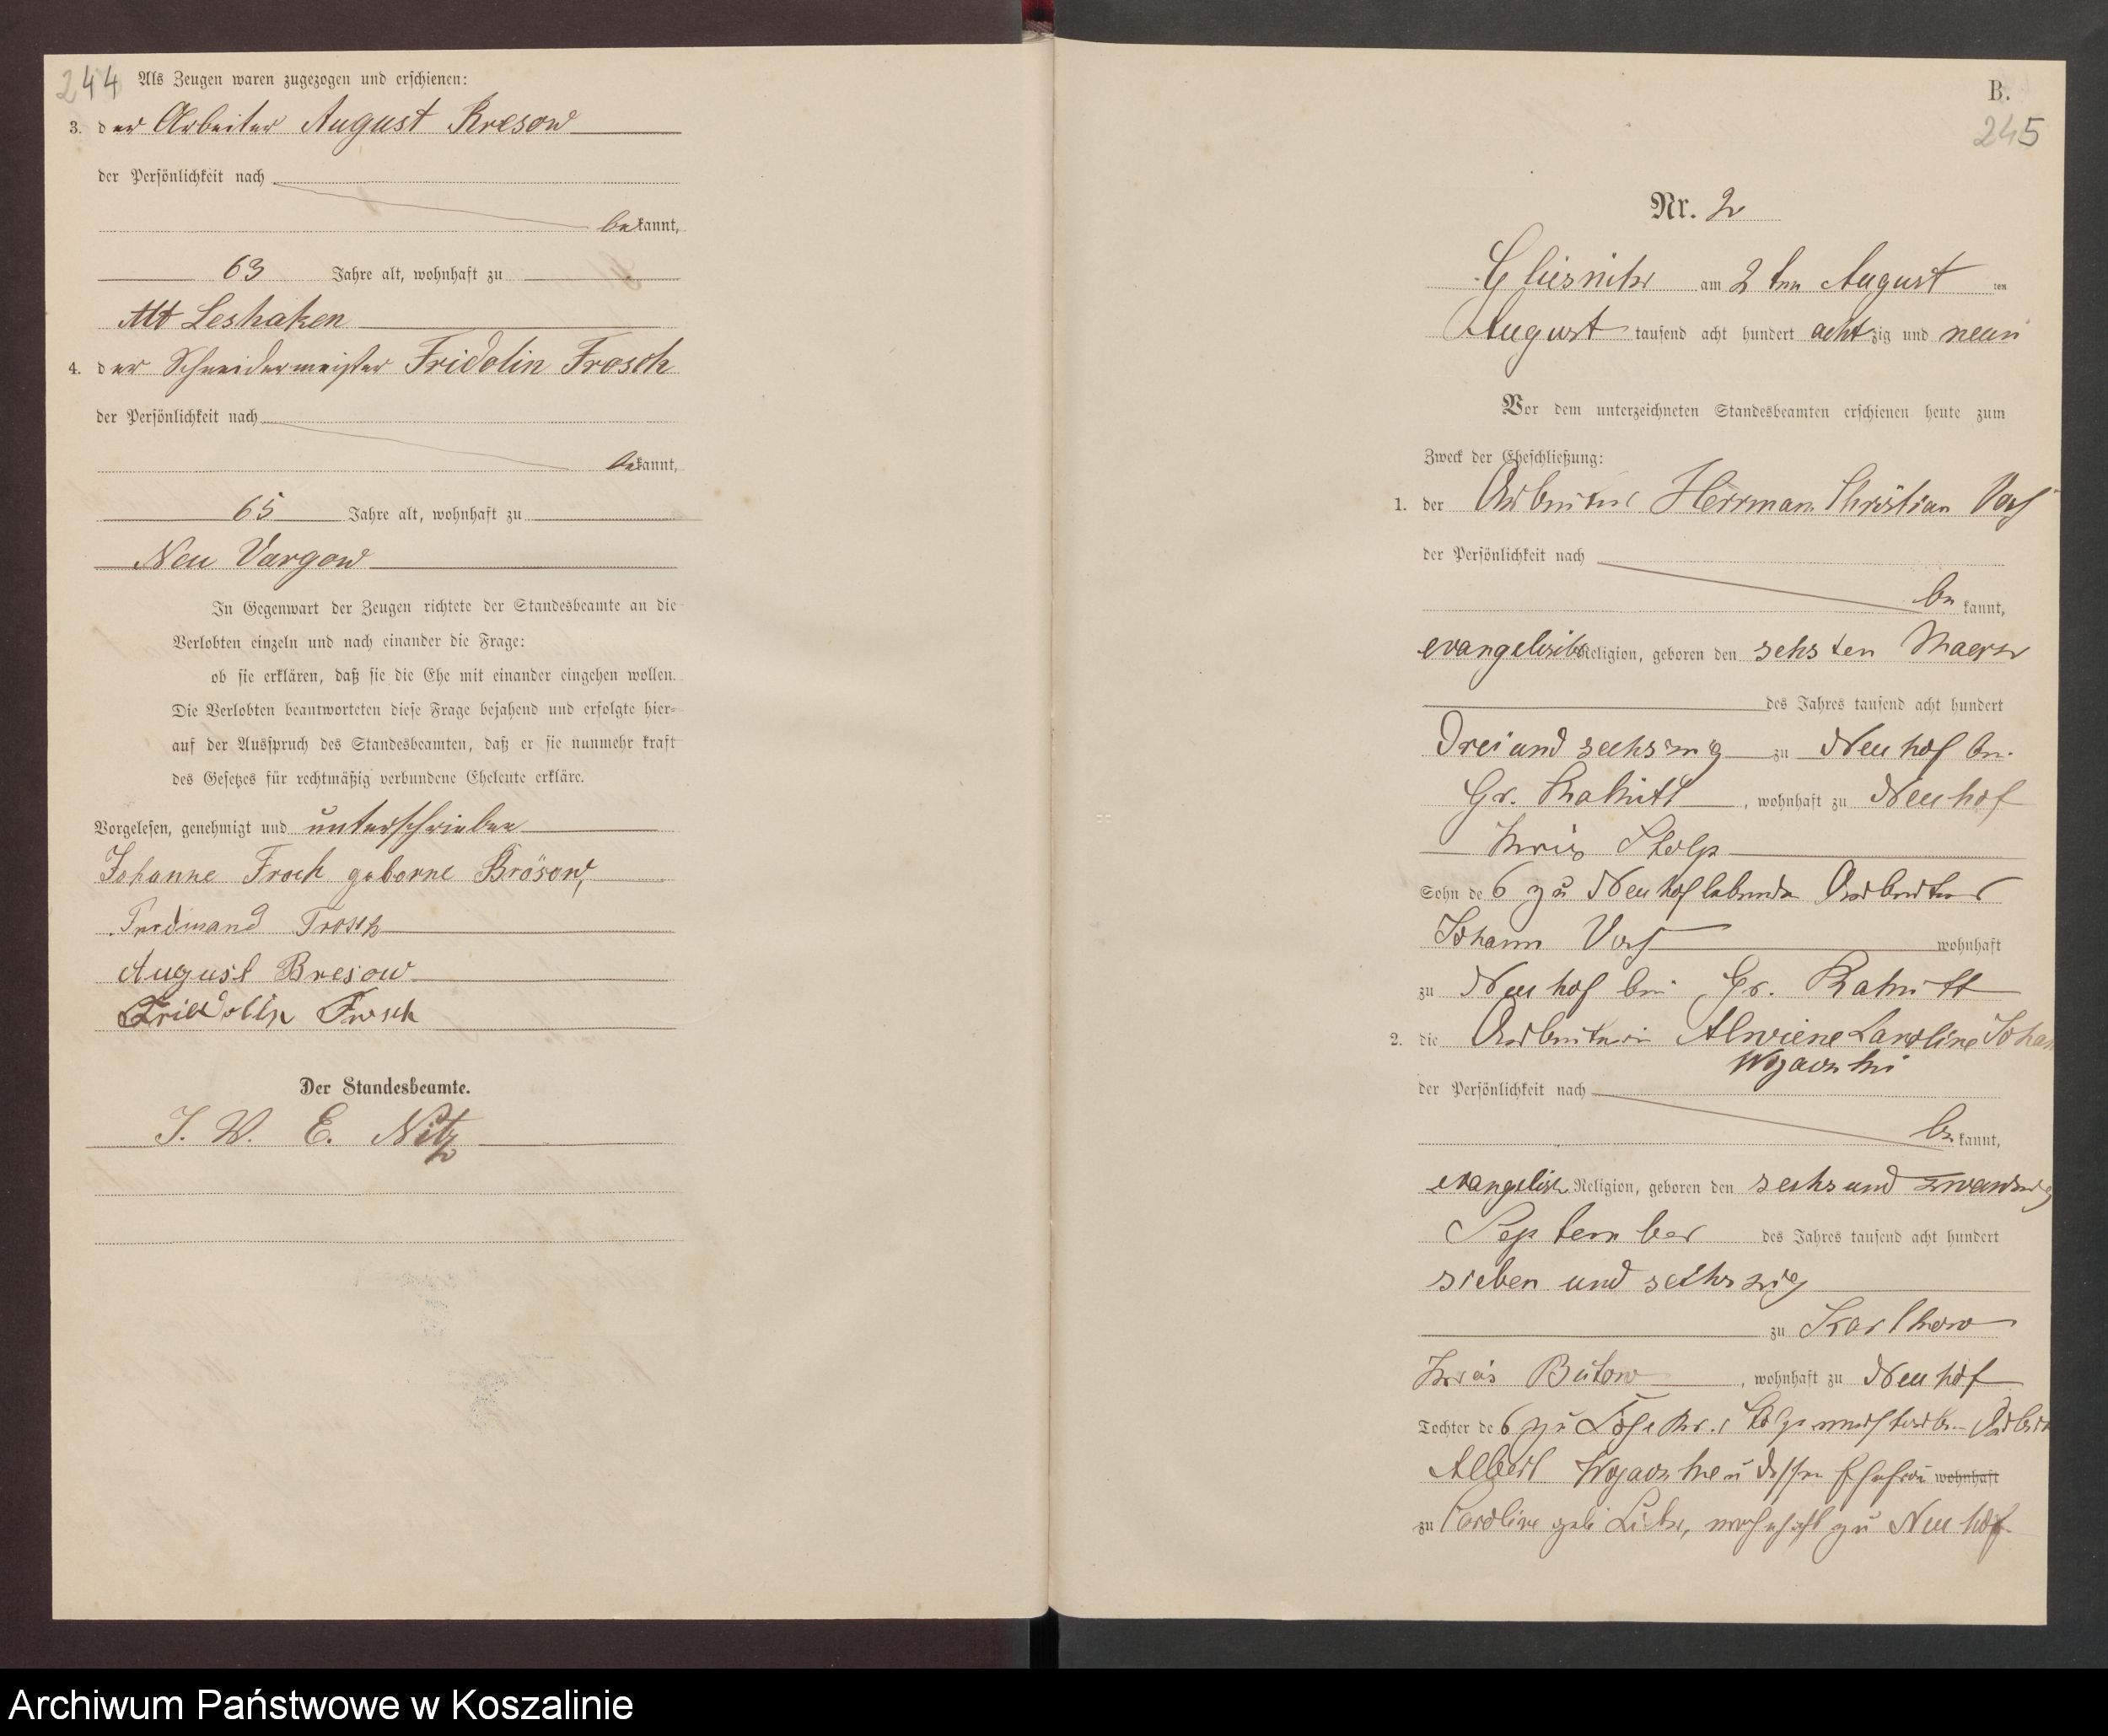 244 Als Zeugen waren zugezogen und erschienen:
3. der Arbeiter August Bresow
der Persönlichkeit nach
bekannt,
63 Jahre alt, wohnhaft zu
Alt Leshaken
4. der Schneidermeister Fridolin Frosch
der Persönlichkeit nach
bekannt,
65 Jahre alt, wohnhaft zu
Neu Vargow
In Gegenwart der Zeugen richtete der Standesbeamte an die
Verlobten einzeln und nach einander die Frage:
ob sie erklären, daß sie die Ehe mit einander eingehen wollen.
Die Verlobten beantworteten diese Frage bejahend und erfolgte hier=
auf der Ausspruch des Standesbeamten, daß er sie nunmehr kraft
des Gesetzes für rechtmäßig verbundene Eheleute erkläre.
Vorgelesen, genehmigt und unterschrieben
Johanne Frosch geborne Brösow,
Ferdinand Frosch
August Bresow
Fridolin Frosch
Der Standesbeamte.
J. V. E. Nitz
B.
245
Nr. 2
Gliesnitz am 2 ten August ten
August tausend acht hundert achtzig und neun
Vor dem unterzeichneten Standesbeamten erschienen heute zum
Zweck der Eheschließung:
1. der Arbeiter Herrman Christian
der Persönlichkeit nach
bekannt,
evangelischer Religion, geboren den sehsten Maerz
des Jahres tausend acht hundert
Drei und sechszig zu Neuhof bei
Gr. wohnhaft zu Neuhof
Kreis Stolp
Sohn des zu Neuhof lebenden Arbeiters
Johann wohnhaft
zu Neuhof bei Gr.
2. die Arbeiterin Alwiene Karoline Johan
der Persönlichkeit nach
bekannt,
evangelisch Religion, geboren den sechs und zwanzig
September des Jahres tausend acht hundert
sieben und sechszig
zu
Kreis Bütow, wohnhaft zu Neuhof
Tochter des zu Kr. Stolp verstorben
Albert u dessen Ehefrau wohnhaft
zu Caroline geb wohnhaft zu Neuhof.
Archiwum Państwowe w Koszalinie